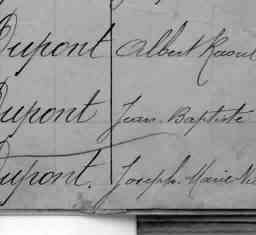 Dupont Albert Raoul
Dupont Jean Baptiste
Dupont. Joseph Marie